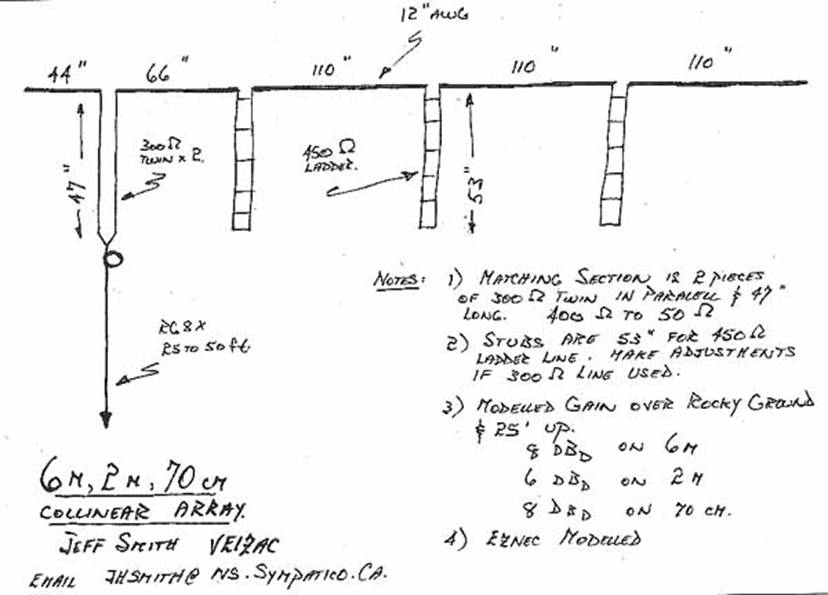 12" AWG
44"
66"
110"
110"
110"
47"
300Ω
TWIN x 2.
450 Ω
LADDER.
53"
RG8X
25 TO 50 ft
NOTES: 1) MATCHING SECTION IS 2 PIECES
OF 300 Ω TWIN IN PARALELL & 47"
LONG. 400 Ω TO 50 Ω
2) STUBS ARE 53" FOR 450Ω
LADDER LINE. MAKE ADJUSTMENTS
IF 300 Ω LINE USED.
3) MODELLED GAIN OVER ROCKY GROUND
& 25' UP.
8 DBD ON 6M
6 DBD ON 2M
8 DBD ON 70 CM.
4) EZNEC MODELLED
6M, 2M, 70 CM
COLLINEAR ARRAY.
JEFF SMITH VE1ZAC
EMAIL JHSMITH@NS.SYMPATICO.CA.